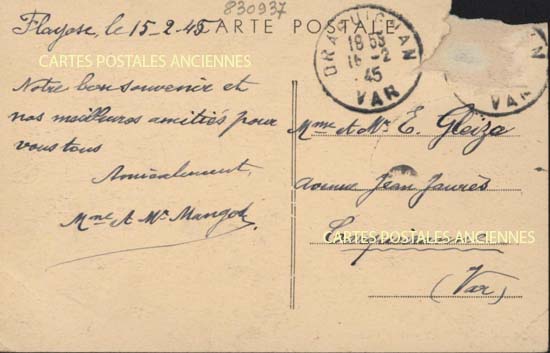 830937
Flayosc, le 15-2-45
CARTE POSTALE
DRAGUIGNAN
18 H
15-2
45
VAR
VAR
CARTES POSTALES ANCIENNES
Notre bon souvenir et
nos meilleures amitiés pour
vous tous
Amicalement,
Mme & Mr Mangot
Mme & Mr E. Gleize
Avenue Jean Jaurès
CARTES POSTALES ANCIENNES
(Var)